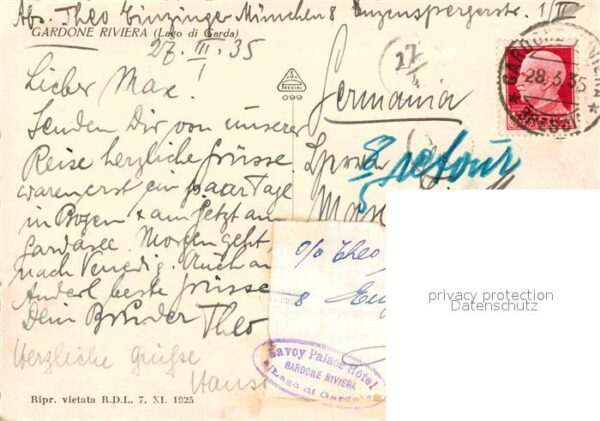 Abs. Theo Einzinger München 8 Enzenspergerstr. 1/II
GARDONE RIVIERA (Lago di Garda)
27. III. 35
Lieber Max!
Senden Dir von unserer
Reise herzliche Grüsse
waren erst ein paar Tage
in Bozen + am jetzt am
Gardasee. Morgen geht
nach Venedig. Auch an
Anderl beste Grüsse
Dein Bruder Theo
Herzliche Grüße
Hansi
Ripr. vietata R.D.L. 7. XI. 1925
099
Germania
retour
c/o Theo
8
Savoy Palace Hotel
GARDONE RIVIERA
(Lago di Garda)
GARDONE RIVIERA
28.3.35
privacy protection
Datenschutz